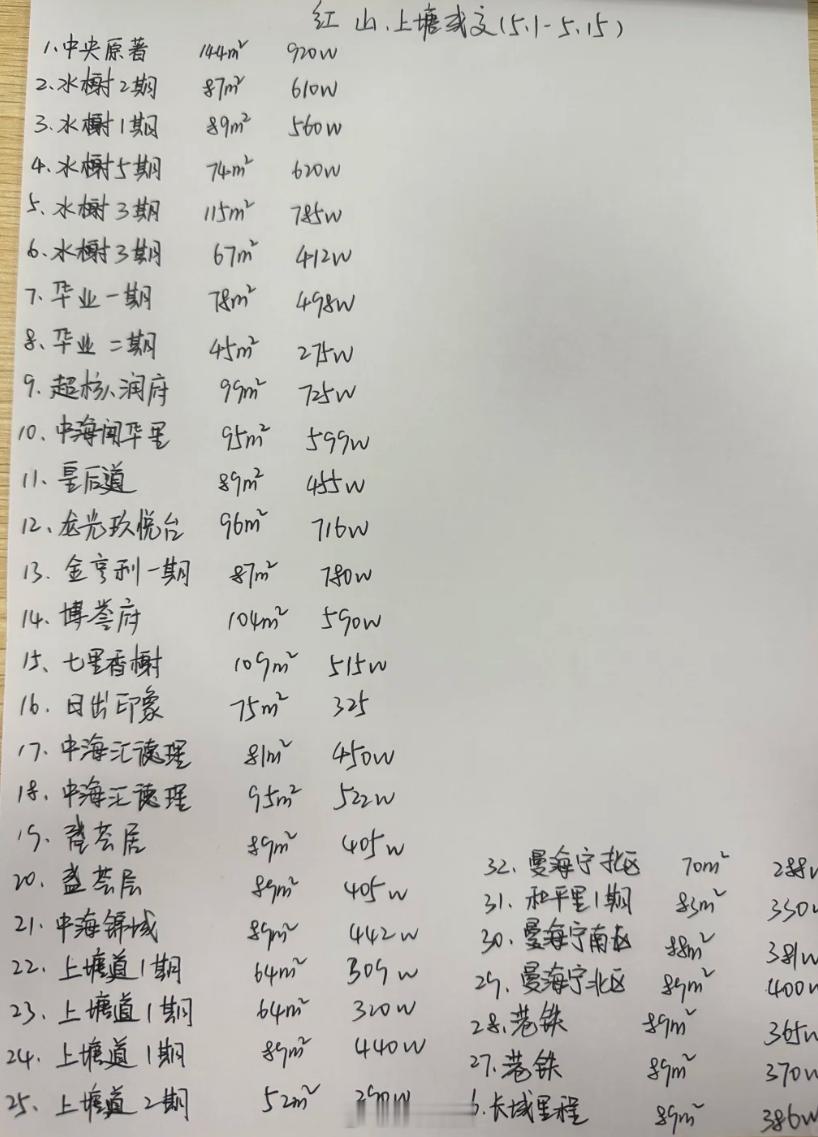 红山、上塘成交(5.1-5.15)
1、中央原著 144m² 920W
2、水榭2期 87m² 610W
3、水榭1期 89m² 560W
4、水榭5期 74m² 620W
5、水榭3期 115m² 785W
6、水榭3期 67m² 412W
7、华业一期 78m² 498W
8、华业二期 45m² 275W
9、超核润府 99m² 725W
10、中海闻华里 95m² 599W
11、皇后道 89m² 455W
12、龙光玖悦台 96m² 716W
13、金亨利一期 87m² 780W
14、博誉府 104m² 590W
15、七里香榭 109m² 515W
16、日出印象 75m² 325
17、中海汇德理 81m² 450W
18、中海汇德理 95m² 522W
19、荟居 89m² 405W
20、荟居 89m² 405W
21、中海锦城 89m² 442W
22、上塘道1期 64m² 309W
23、上塘道1期 64m² 320W
24、上塘道1期 89m² 440W
25、上塘道2期 52m² 290W
32、曼海宁北区 70m² 288W
31、和平里1期 83m² 350W
30、曼海宁南区 88m² 381W
29、曼海宁北区 89m² 400W
28、港铁 89m² 365W
27、港铁 89m² 370W
6、长城里程 89m² 386W